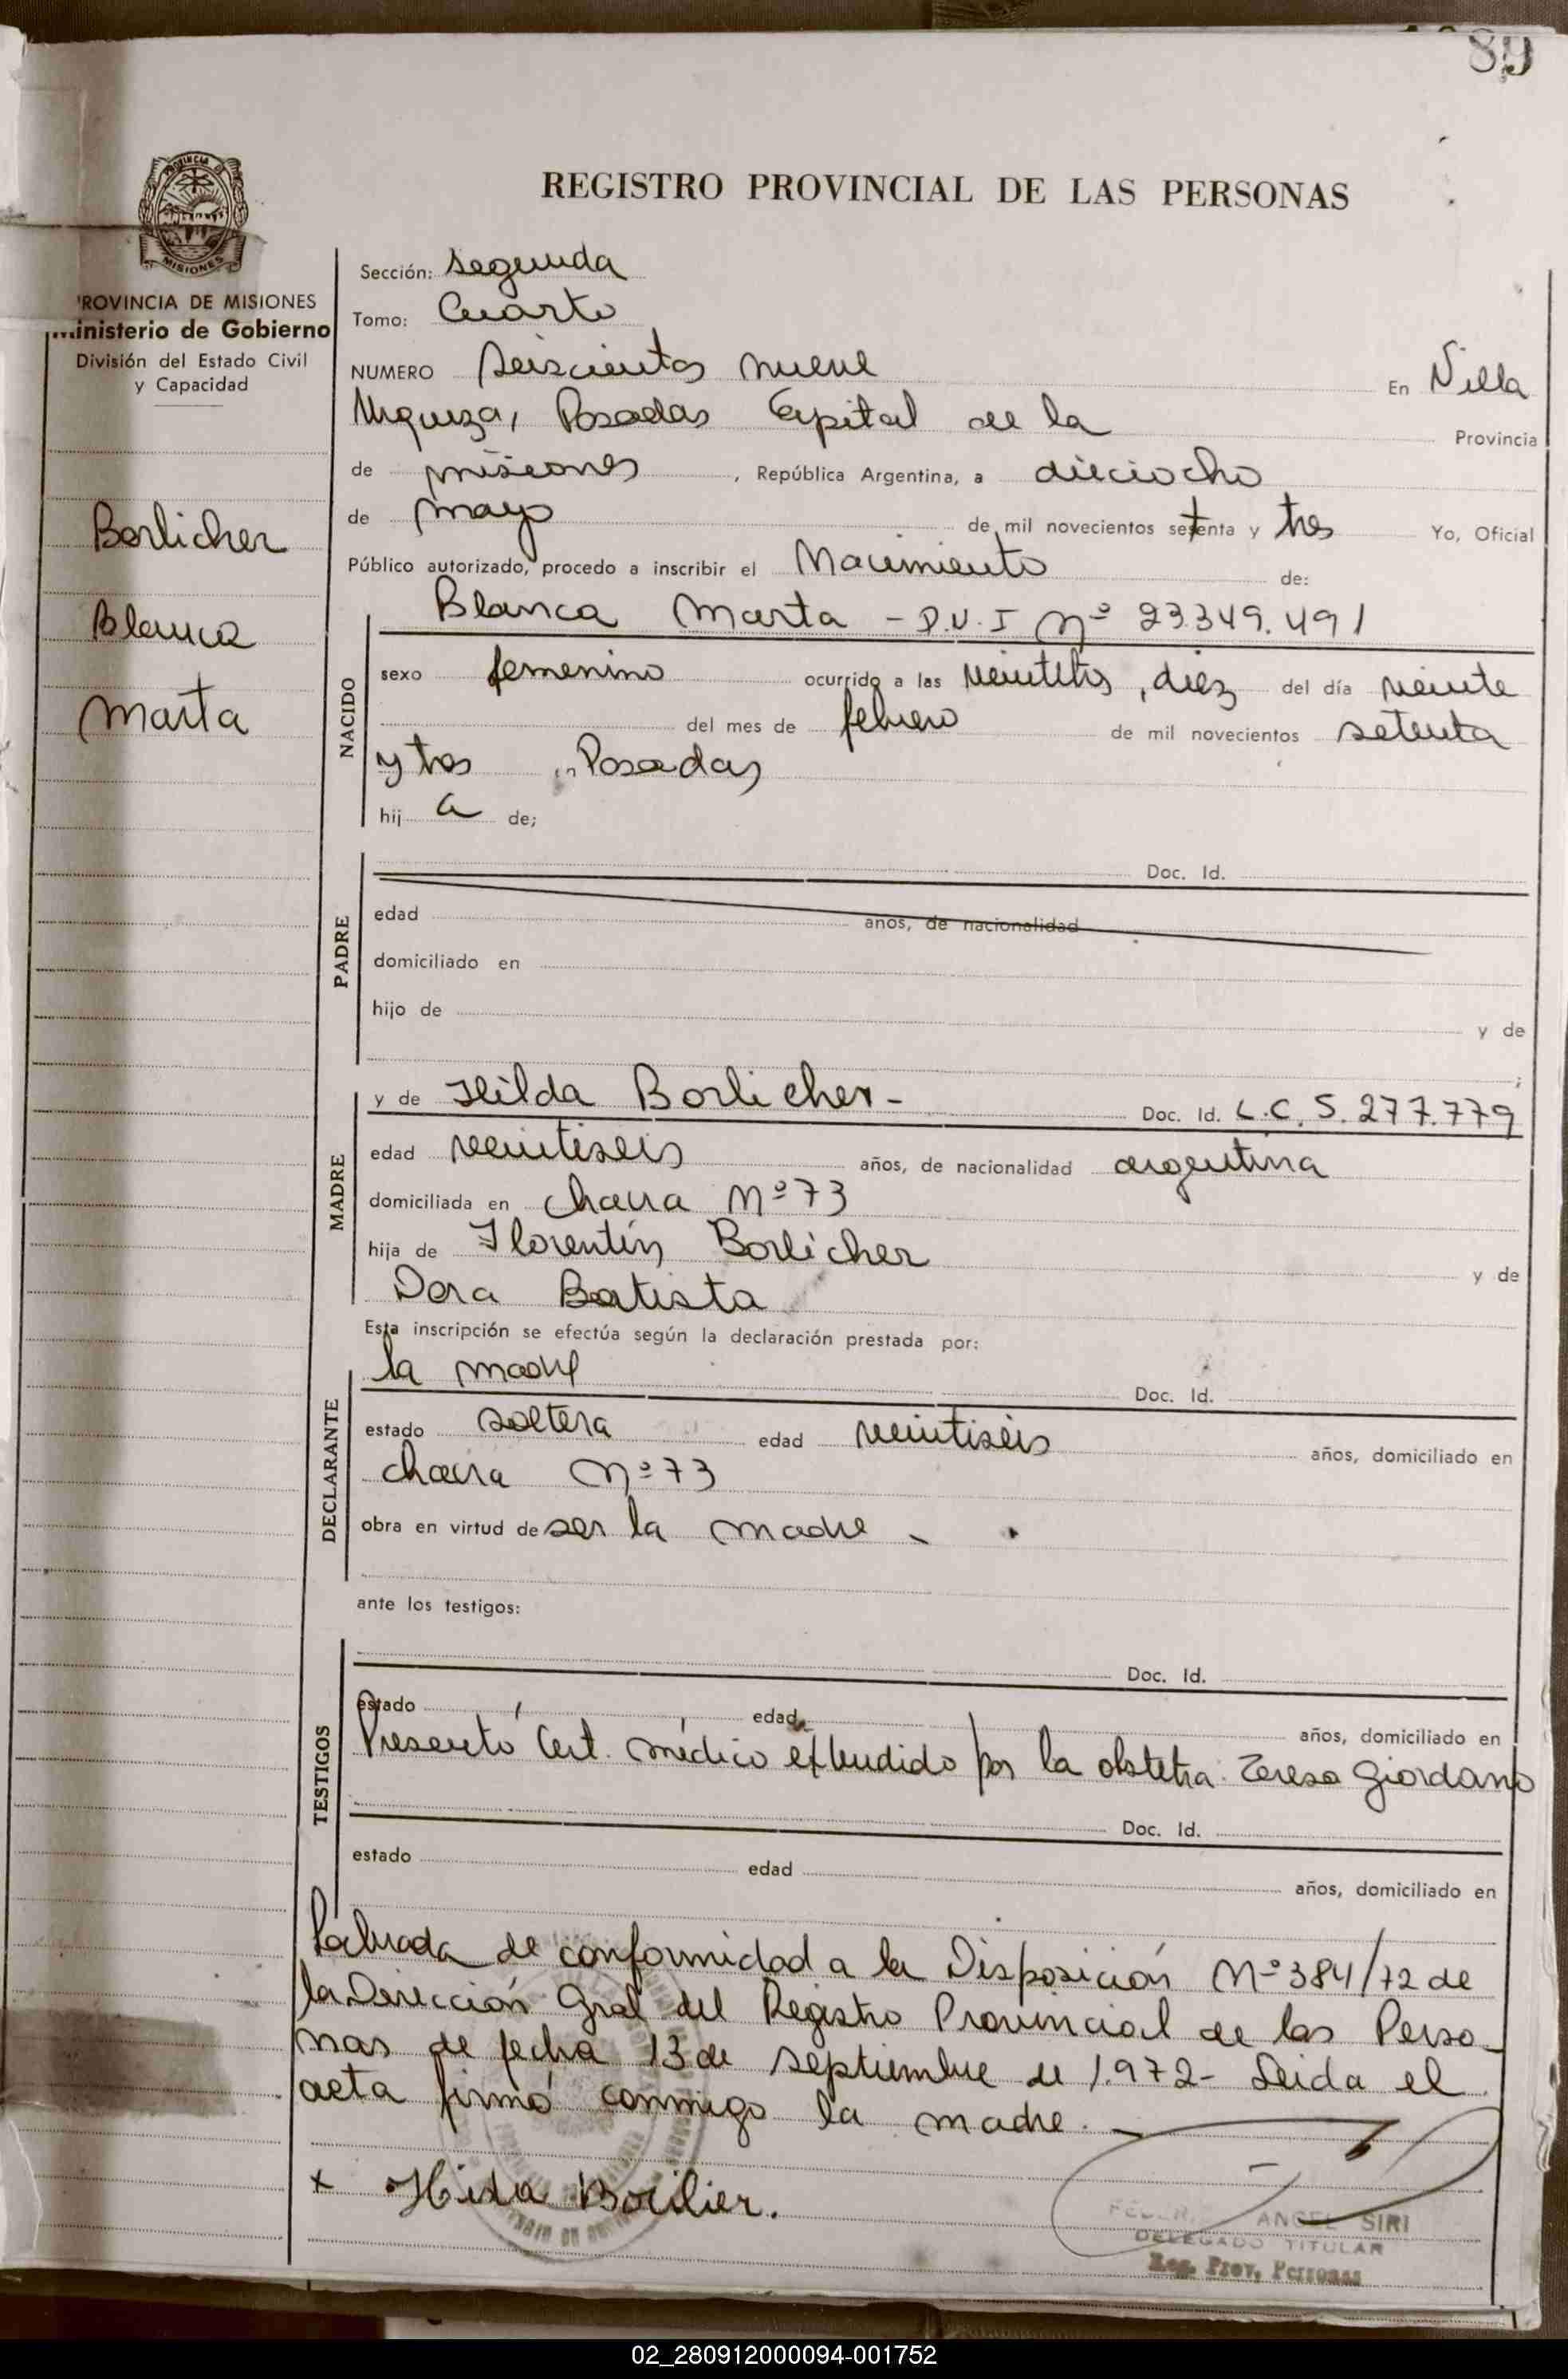 89
REGISTRO PROVINCIAL DE LAS PERSONAS
PROVINCIA DE
MISIONES
ROVINCIA DE MISIONES
inisterio de Gobierno
División del Estado Civil
y Capacidad
Borlicher
Blanca
Marta
Sección: segunda
Tomo: Cuarto
NUMERO seiscientos nueve En Villa
Urquiza, Posadas Capital de la Provincia
de misiones, República Argentina, a dieciocho
de mayo de mil novecientos setenta y tres Yo, Oficial
Público autorizado, procedo a inscribir el Nacimiento de:
Blanca Marta - D.N.I Nº 23.349.491
NACIDO
sexo femenino ocurrido a las veintitrés, diez del día veinte
del mes de febrero de mil novecientos setenta
y tres en Posadas
hij a de;
PADRE
Doc. Id.
edad años, de nacionalidad
domiciliado en
hijo de y de
;
MADRE
y de Hilda Borlicher - Doc. Id. L.C. 5.277.779
edad veintiseis años, de nacionalidad argentina
domiciliada en chacra Nº 73
hija de Florentín Borlicher y de
Dora Batista
Esta inscripción se efectúa según la declaración prestada por:
DECLARANTE
la madre Doc. Id.
estado soltera edad veintiseis años, domiciliado en
chacra Nº 73
obra en virtud de ser la madre -
ante los testigos:
TESTIGOS
Doc. Id.
estado edad años, domiciliado en
Presentó Cert. médico extendido por la obstetra: Teresa Giordano
Doc. Id.
estado edad años, domiciliado en
Labrada de conformidad a la Disposición Nº 384/72 de
la Dirección Gral del Registro Provincial de las Perso-
nas de fecha 13 de septiembre de 1.972- Leida el
acta firmó conmigo la madre. -
x Hilda Borilier.
ANGEL SIRI
DELEGADO TITULAR
Reg. Prov. Personas
02_280912000094-001752